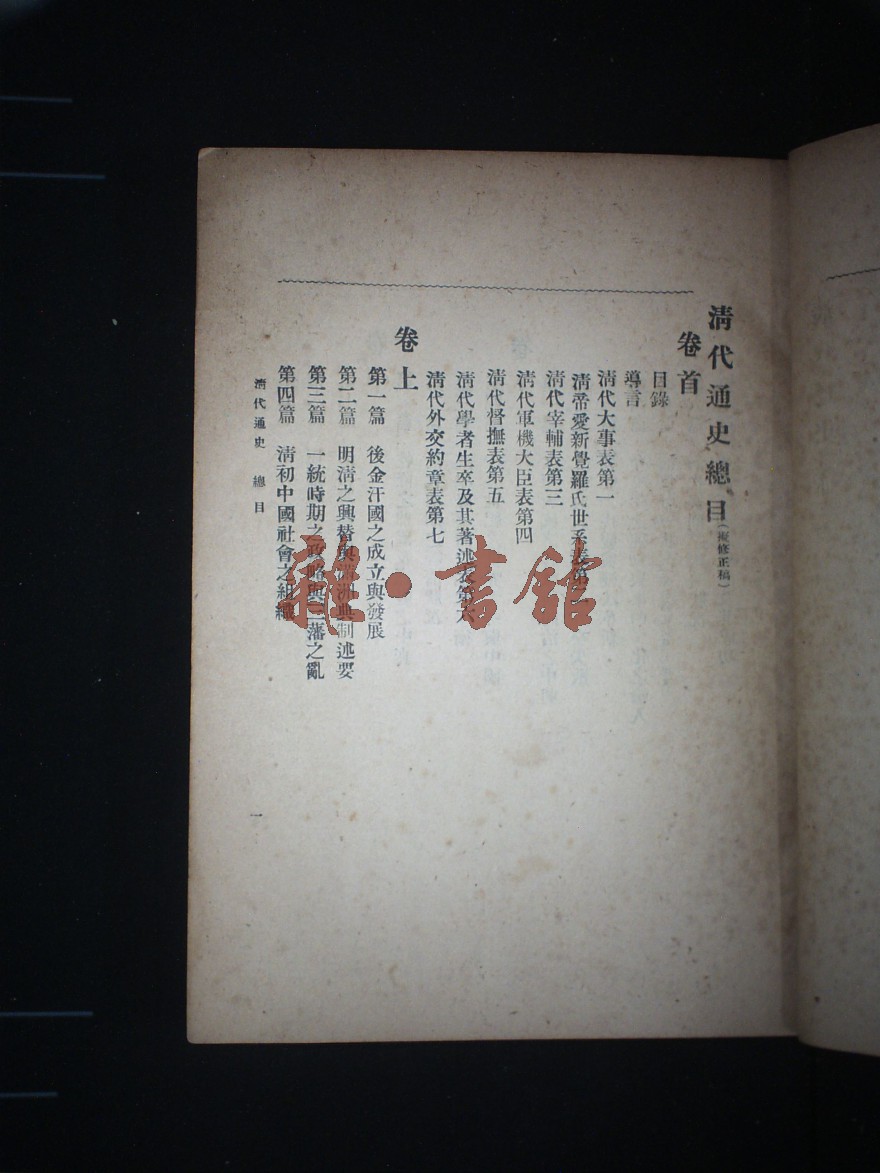 清代通史總目(複修正稿)
卷首
目錄
導言
清代大事表第一
清帝愛新覺羅氏世系表第二
清代宰輔表第三
清代軍機大臣表第四
清代督撫表第五
清代學者生卒及其著述表第六
清代外交約章表第七
卷上
第一篇 後金汗國之成立與發展
第二篇 明清之興替與滿洲典制述要
第三篇 一統時期之政略與三藩之亂
第四篇 清初中國社會之組織
清代通史 總目
一
雜·書館